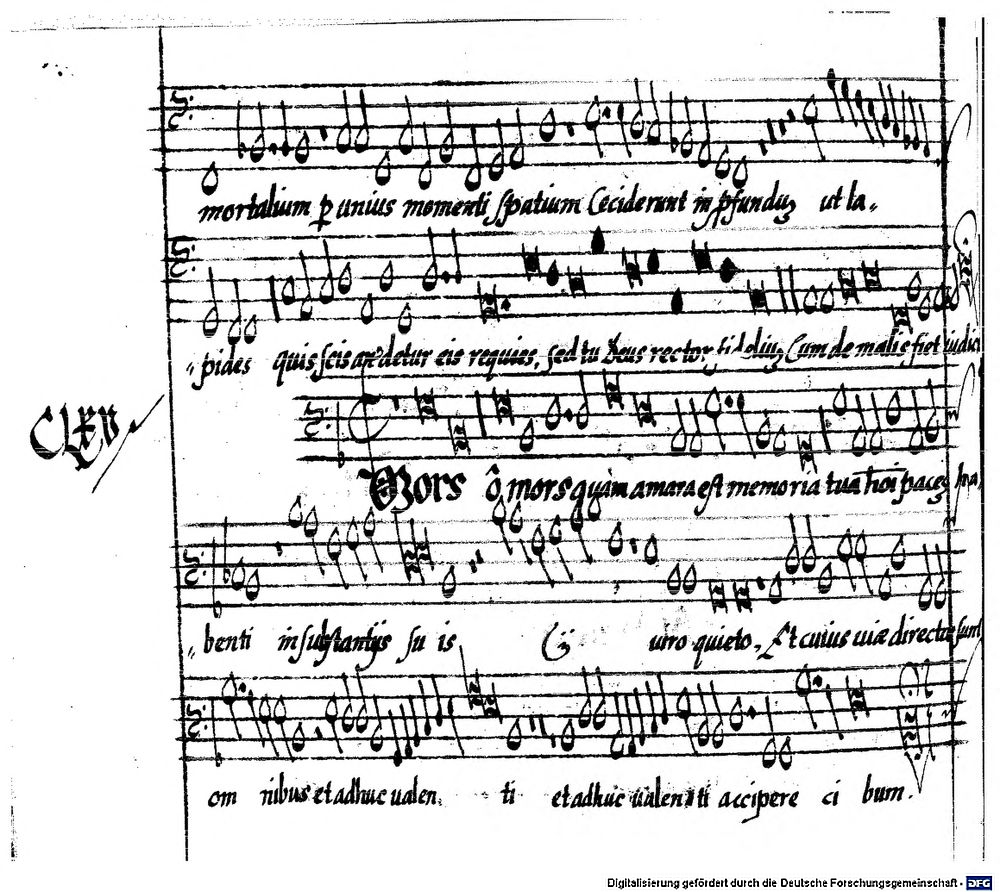 mortalium p unius momenti spatium Ceciderunt in pfunduʒ ut la„
„pides quis scis an detur eis requies, sed tu Deus rector fideliuʒ Cum de malis fiet iudici
CLXV
Mors ô mors quàm amara est memoria tua hoi paceʒ ha„
„benti in substantijs su is ij uiro quieto, Et cuius uiæ directæ sunt
om nibus et adhuc ualen ti et adhuc ualen ti accipere ci bum.
Digitalisierung gefördert durch die Deutsche Forschungsgemeinschaft - DFG